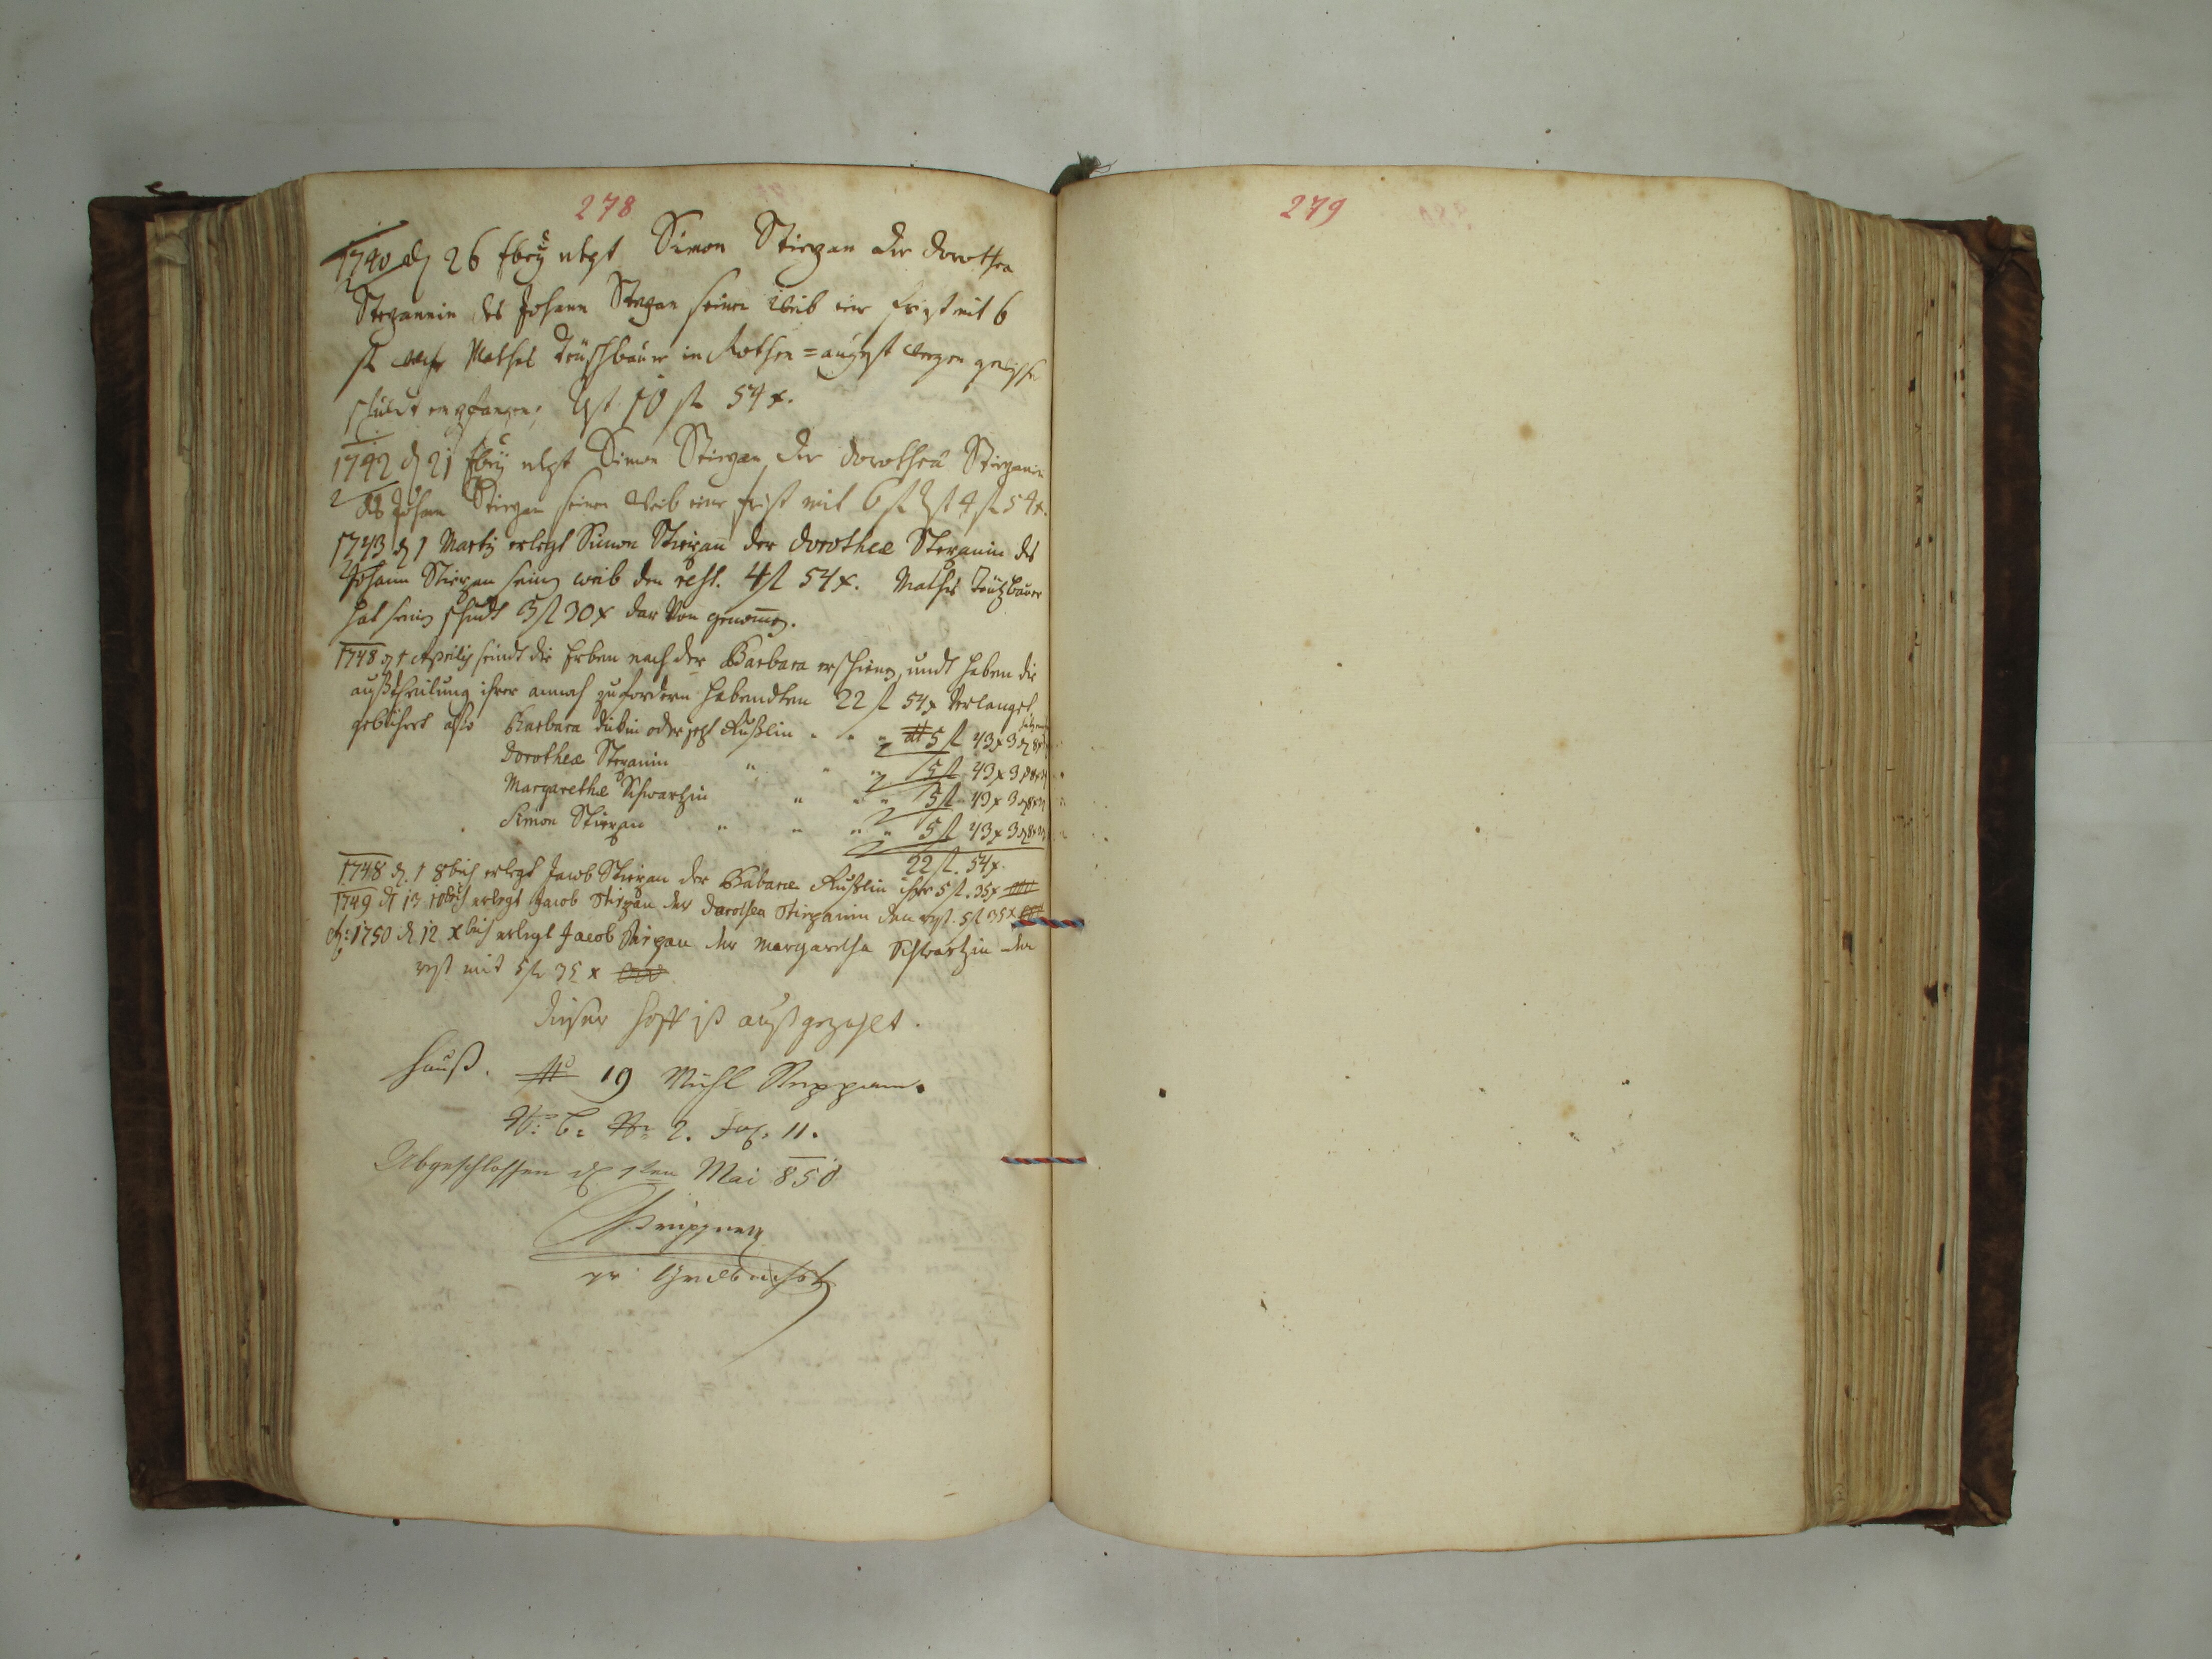 278
1740 d 26 fbrij erlegt Simon Stiepan der dorothea
Stepanin des Johann Stepan seinen Weib eine frist mit 6
fl Mathes in Rothen = august wegen
schuldt empfangen, Rest 10 fl 54 x.
1742 d 21 fbrij erlegt Simon Stiepan der dorothea Stiepanin
des Johann Stiepan seinen Weib eine frist mit 6 fl Rst 4 fl 54 x.
1743 d 1 Martij erlegt Simon Stiepan der dorotheæ Stepanin des
Johann Stiepan sein weib den rest. 4 fl 54 x. Mathes
hat sein schuldt 3 fl 30 x dar Von genomen.
1748 d 1 Aprilis seindt die Erben nach der Barbara erschienen, undt haben die
außtheilung ihrer annoch zufordern habendten 22 fl 54 x Verlanget.
gebühret also Barbara oder jetzt Rußlin " " " 5 fl 43 x 3 d
Dorotheæ Stepanin " " " 5 fl 43 x 3 d
Margarethæ Schwartzin " " " 5 fl 43 x 3 d
Simon Stiepan " " " " 5 fl 43 x 3 d
22 fl. 54 x.
1748 d. 1 8bris erlegt Jacob Stiepan der Babaræ Rußlin ihre 5 fl. 35 x
1749 d 13 10bris erlegt Jacob Stiepan der Dorothea Stiepanin den rest. 5 fl 35 x
1750 d 12 Xbris erlegt Jacob Stiepan der Margaretha Schwartzin den
rest mit 5 fl 35 x
dieser Hoff ist außgezahlt.
Hauß. No 19 Mühl
2. Fol. 11.
Abgeschlossen d 1ten Mai 850
279